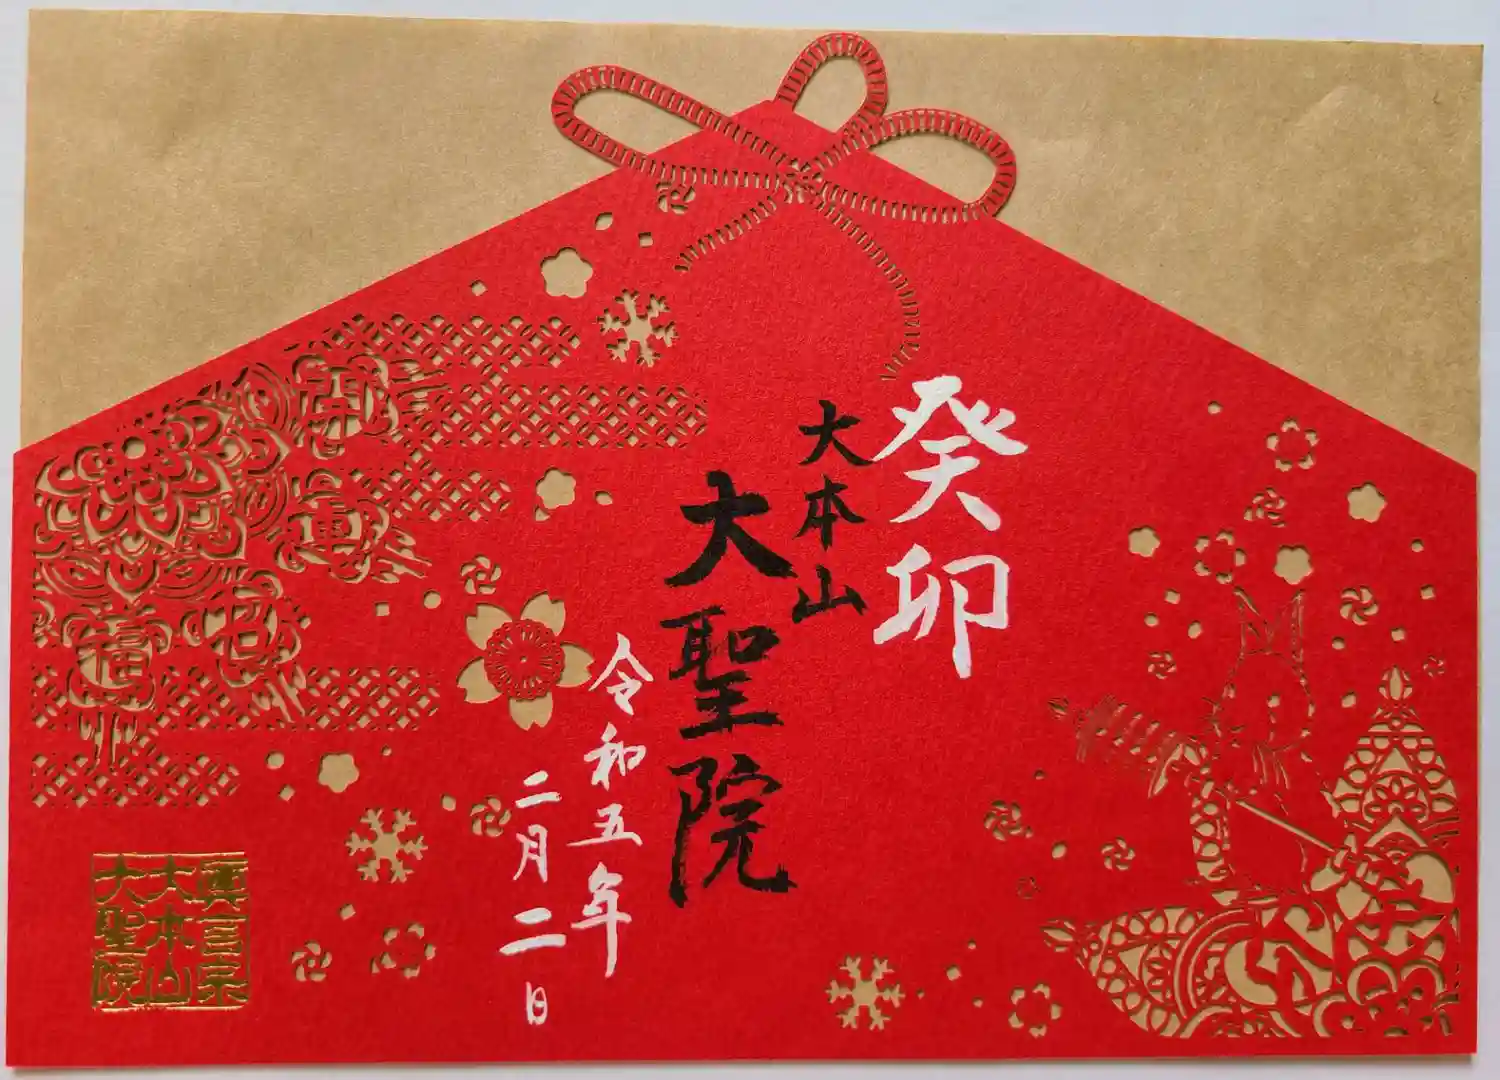 癸卯
大本山
大聖院
令和五年
二月二日
真言宗
大本山
大聖院
開運
招福